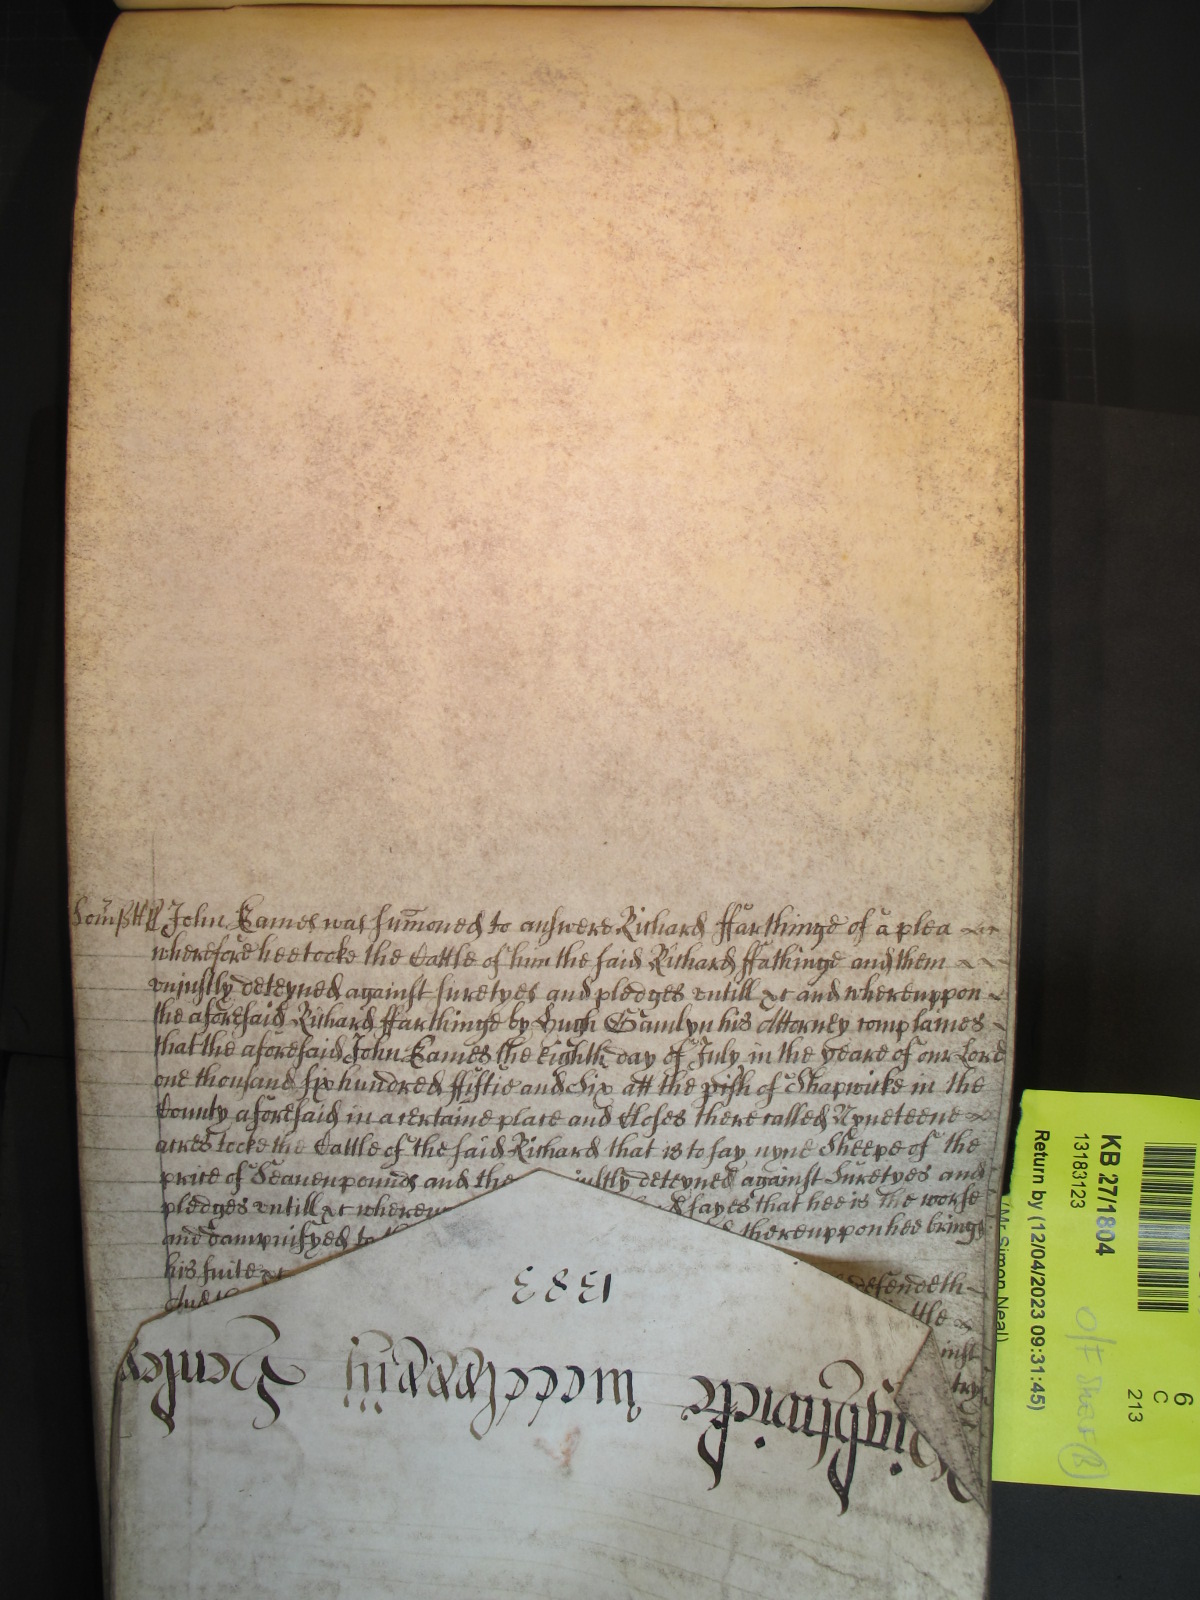 Somsett John Eames was sumoned to answere Richard ffarthinge of a plea
wherefore hee tooke the Cattle of him the said Richard ffathinge and them
uniustly deteyned against suretyes and pledges untill &c and whereuppon
the aforesaid Richard ffarthinge by Hugh Gamlyn his Attorney complaines
that the aforesaid John Eames the Eighth day of July in the yeare of our Lord
one thousand six hundred ffiftie and Six att the pish of Shapwicke in the
County aforesaid in a certaine place and Closes there called Nyneteene
acres tooke the Cattle of the said Richard that is to say nyne Sheepe of the
price of Seaven pounds and the uniustly deteyned against Suretyes and
pledges untill &c whereu & sayes that hee is the worse
and dampnifyed to th thereuppon hee brings
his suite &c defendeth
And th ttle
inst
1383
Wightwicke
KB 27/1804
13183123
Return by (12/04/2023 09:31:45)
(Mr Simon Neal)
6
C
213